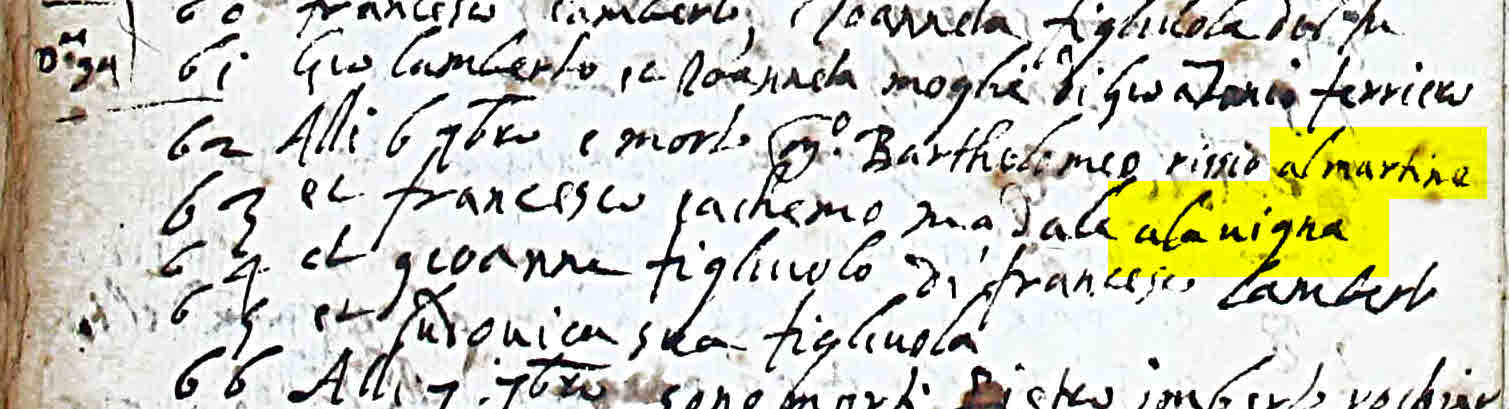 60 francesco lamberto, Joannela figliuola del
61 Gio lamberto et Joannela moglie di Gio Antonio ferriero
62 Alli 6 7bre e morto m.o Bartholomeo rissio al martine
63 et francesco iachemo madala ala vigna
64 et gioanne figliuolo di francesco lamberto
65 et ludovica sua figliuola
66 Alli 7 7bre sono morti